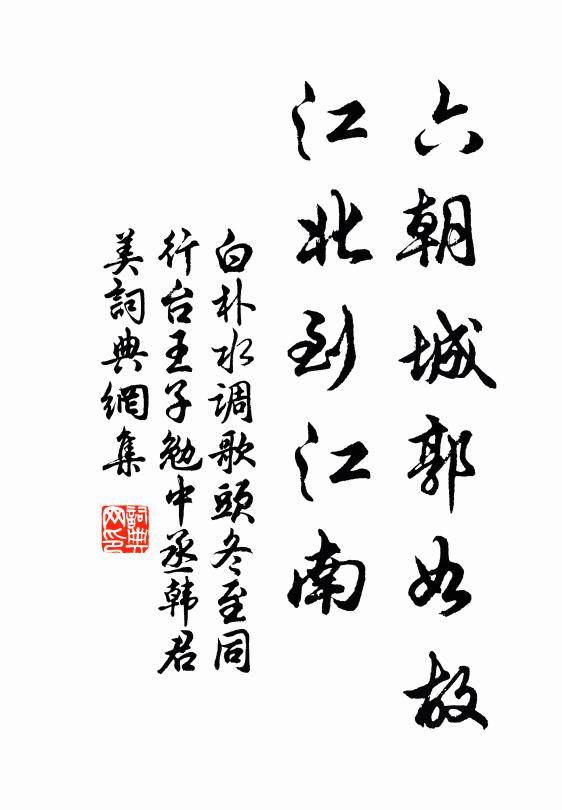 六朝城郭如故
江北到江南
白朴水调歌頭冬至同
行台王子勉中丞韩君
美詞典網集
詞典
网印